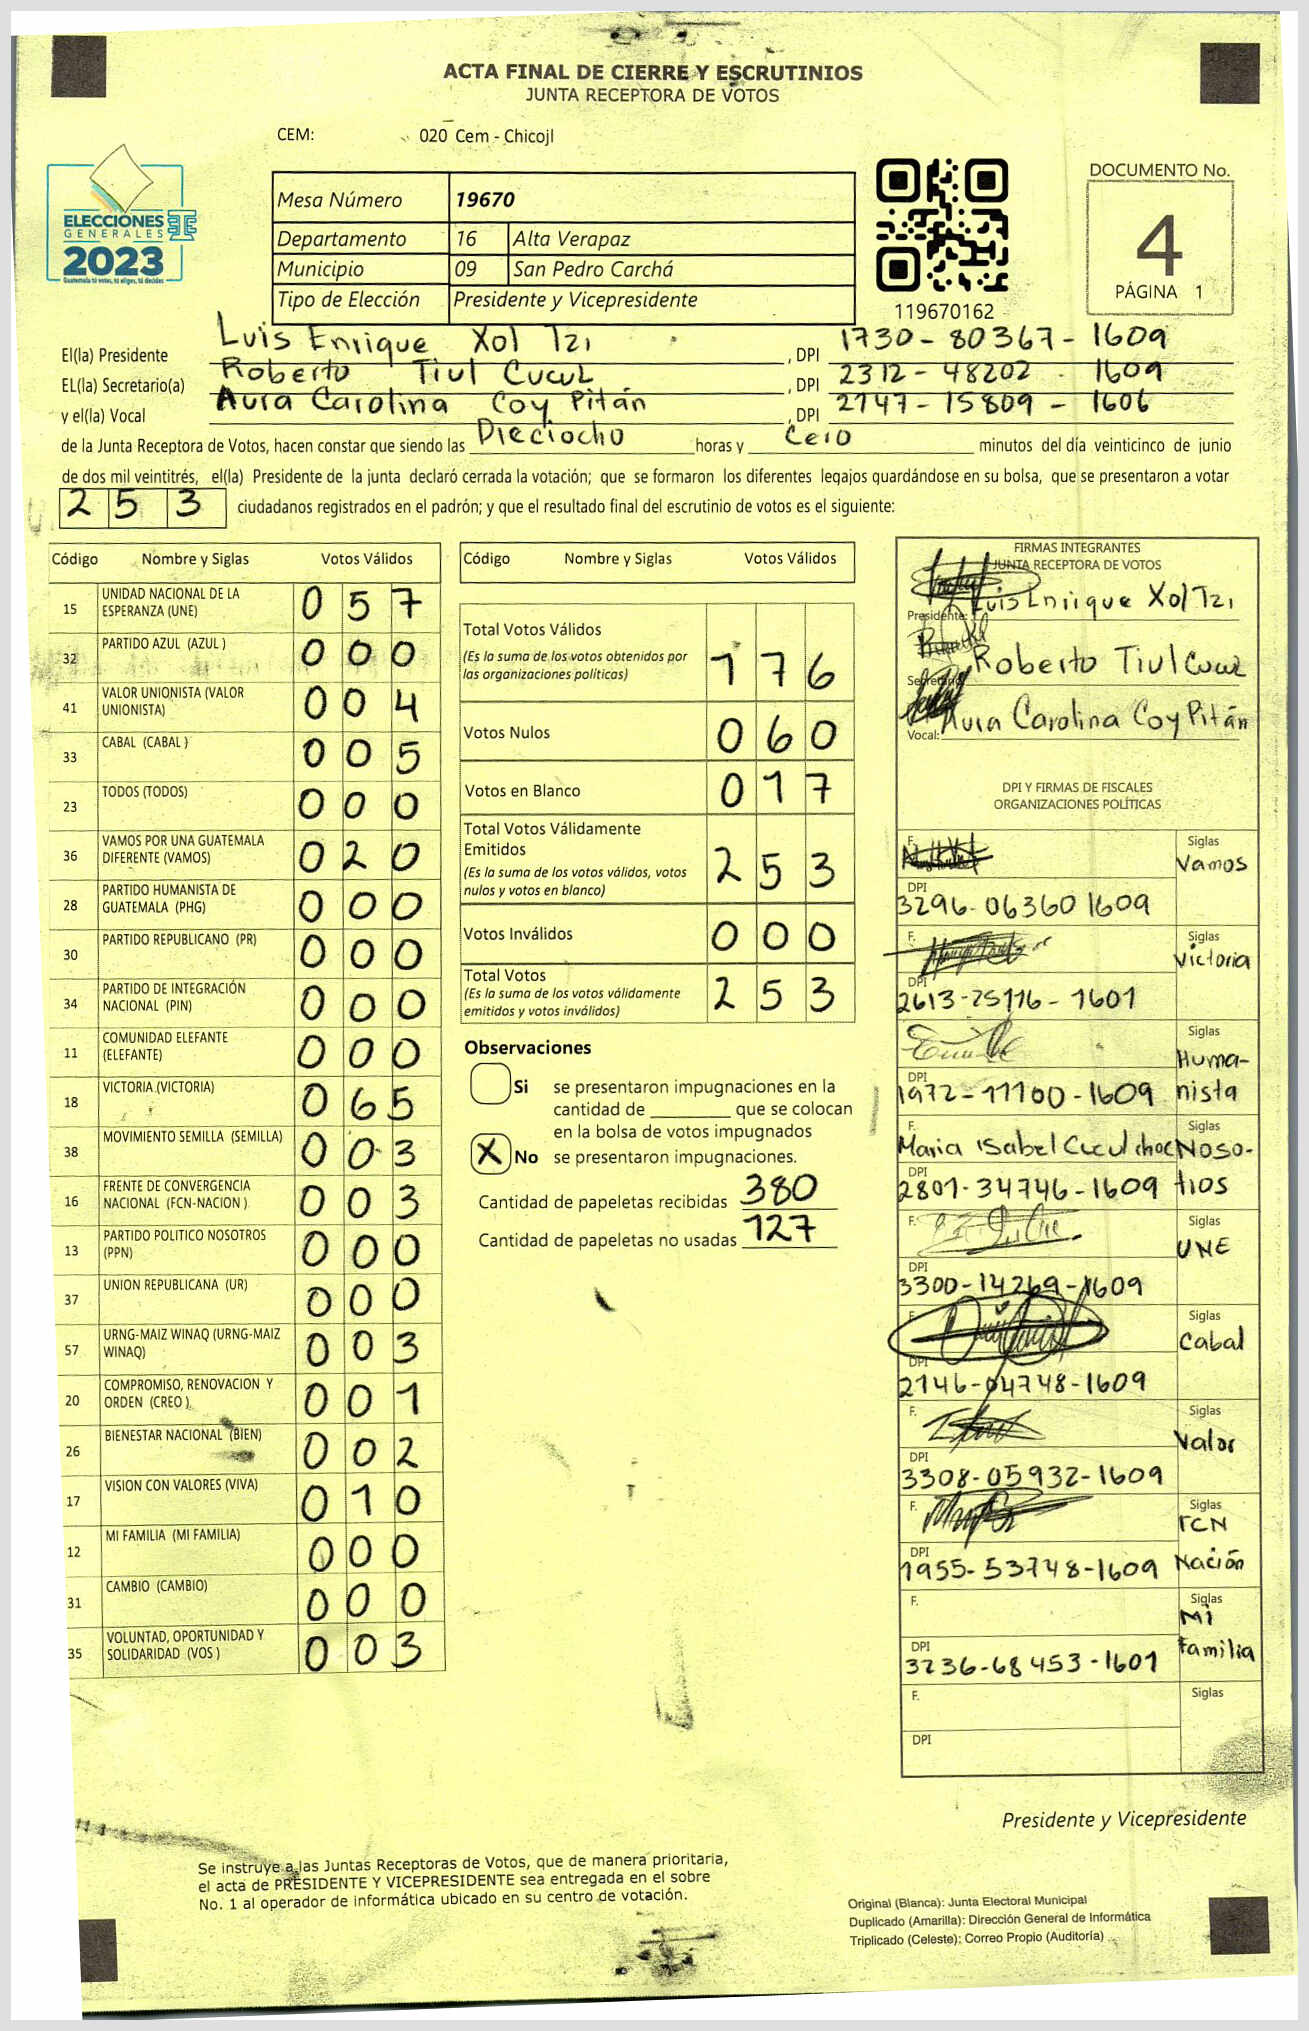 ACTA FINAL DE CIERRE Y ESCRUTINIOS
JUNTA RECEPTORA DE VOTOS
CEM: 020 Cem - Chicojl
ELECCIONES
GENERALES
2023
Guatemala tú votas, tú eliges, tú decides
Mesa Número 19670
Departamento 16 Alta Verapaz
Municipio 09 San Pedro Carchá
Tipo de Elección Presidente y Vicepresidente
119670162
DOCUMENTO No.
4
PÁGINA 1
El(la) Presidente Luis Enrique Xol Tzi , DPI 1730-80367-1609
EL(la) Secretario(a) Roberto Tiul Cucul , DPI 2312-48202-1609
y el(la) Vocal Aura Carolina Coy Pitán , DPI 2147-15809-1606
de la Junta Receptora de Votos, hacen constar que siendo las Dieciocho horas y Cero minutos del día veinticinco de junio
de dos mil veintitrés, el(la) Presidente de la junta declaró cerrada la votación; que se formaron los diferentes legajos guardándose en su bolsa, que se presentaron a votar
253 ciudadanos registrados en el padrón; y que el resultado final del escrutinio de votos es el siguiente:
Código Nombre y Siglas Votos Válidos
15 UNIDAD NACIONAL DE LA ESPERANZA (UNE) 057
32 PARTIDO AZUL (AZUL ) 000
41 VALOR UNIONISTA (VALOR UNIONISTA) 004
33 CABAL (CABAL ) 005
23 TODOS (TODOS) 000
36 VAMOS POR UNA GUATEMALA DIFERENTE (VAMOS) 020
28 PARTIDO HUMANISTA DE GUATEMALA (PHG) 000
30 PARTIDO REPUBLICANO (PR) 000
34 PARTIDO DE INTEGRACIÓN NACIONAL (PIN) 000
11 COMUNIDAD ELEFANTE (ELEFANTE) 000
18 VICTORIA (VICTORIA) 065
38 MOVIMIENTO SEMILLA (SEMILLA) 003
16 FRENTE DE CONVERGENCIA NACIONAL (FCN-NACION ) 003
13 PARTIDO POLITICO NOSOTROS (PPN) 000
37 UNION REPUBLICANA (UR) 000
57 URNG-MAIZ WINAQ (URNG-MAIZ WINAQ) 003
20 COMPROMISO, RENOVACION Y ORDEN (CREO ) 001
26 BIENESTAR NACIONAL (BIEN) 002
17 VISION CON VALORES (VIVA) 010
12 MI FAMILIA (MI FAMILIA) 000
31 CAMBIO (CAMBIO) 000
35 VOLUNTAD, OPORTUNIDAD Y SOLIDARIDAD (VOS ) 003
Código Nombre y Siglas Votos Válidos
Total Votos Válidos 176
(Es la suma de los votos obtenidos por
las organizaciones políticas)
Votos Nulos 060
Votos en Blanco 017
Total Votos Válidamente
Emitidos 253
(Es la suma de los votos válidos, votos
nulos y votos en blanco)
Votos Inválidos 000
Total Votos 253
(Es la suma de los votos válidamente
emitidos y votos inválidos)
Observaciones
Si se presentaron impugnaciones en la
cantidad de ________ que se colocan
en la bolsa de votos impugnados
X No se presentaron impugnaciones.
Cantidad de papeletas recibidas 380
Cantidad de papeletas no usadas 127
FIRMAS INTEGRANTES
JUNTA RECEPTORA DE VOTOS
Presidente: Luis Enrique Xol Tzi
Secretario: Roberto Tiul Cucul
Vocal: Aura Carolina Coy Pitán
DPI Y FIRMAS DE FISCALES
ORGANIZACIONES POLÍTICAS
F. Siglas Vamos
DPI 3296-06360 1609
F. Siglas Victoria
DPI 2613-25116-1601
Siglas Humanista
DPI 1972-11100-1609
F. Maria Isabel Cucul choc Siglas Nosotros
DPI 2801-34746-1609
F. Siglas UNE
DPI 3300-14269-1609
F. Siglas Cabal
DPI 2146-04748-1609
F. Siglas Valor
DPI 3308-05932-1609
F. Siglas FCN Nación
DPI 1955-53748-1609
F. Siglas Mi Familia
DPI 3236-68453-1601
F. Siglas
DPI
Presidente y Vicepresidente
Se instruye a las Juntas Receptoras de Votos, que de manera prioritaria,
el acta de PRESIDENTE Y VICEPRESIDENTE sea entregada en el sobre
No. 1 al operador de informática ubicado en su centro de votación.
Original (Blanca): Junta Electoral Municipal
Duplicado (Amarilla): Dirección General de Informática
Triplicado (Celeste): Correo Propio (Auditoría)